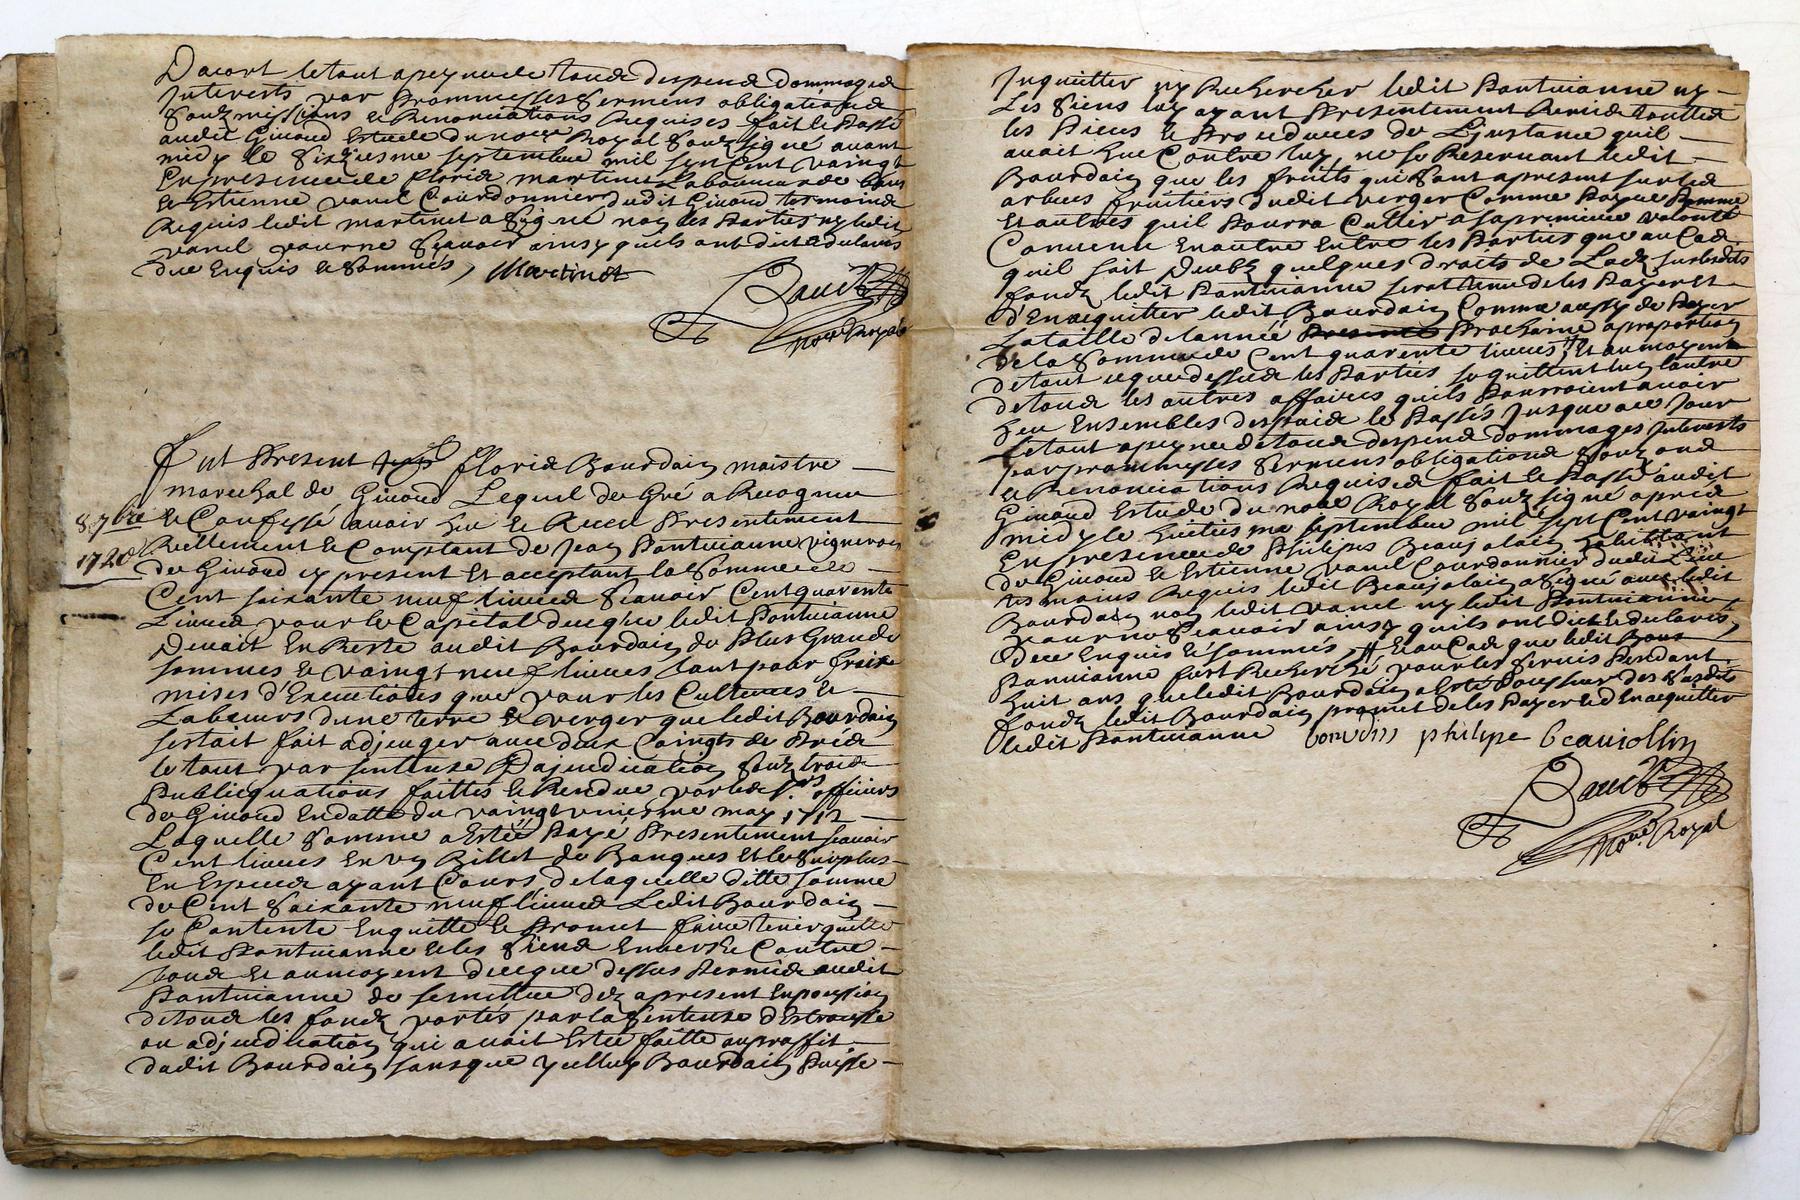 Dacort le tout a peyne de tous despens dommages
Interests par Prommesses sermens obligations
soubzmissions et Renonciations Requises fait et Passé
audit Givord Estude du nore Royal soubzsigné avant
midy le sixiesme septembre mil sept cent vaingt
En presence de floris martinet Laboureur de
et Estienne vanel Courdonnier dudit Givord tesmoins
Requis ledit martinet a signé non les Parties ny ledit
vanel pour ne sçavoir ainsy quils ont dict et declarés
due Enquis et sommés, Martinet
nore Royal
Fut Present floris Bourdain maistre
marechal de Givord Lequel de Gré a Recognu
8. 7bre
1720
et Confessé avoir heu et Receu Presentement
Reellement et Comptant de Jean Pontvianne vigneron
de Givord cy present et acceptant la somme de
Cent soixante neuf livres sçavoir Cent quarente
Livres pour le Capital de ce que ledit Pontvianne
Devoit En Reste audit Bourdain de Plus Grande
sommes et vaingt neuf livres tant pour frais
mises d'Executions que pour les Cultures et
Labeurs dune terre et verger que ledit Bourdain
sestoit fait adjuger avec deux Coingts de Préds
le tout par sentense Dajudication soubz trois
Publicquations faittes et Rendue par les srs officiers
de Givord En datte du vaingt uniesme may 1712
Laquelle somme a Estée Payé Presentement sçavoir
Cent livres En un Billet de Banques et le surplus
En Especes ayant Cours, de laquelle ditte somme
de Cent soixante neuf livres Ledit Bourdain
se Contente Enquitte et Promet faire tenir quitte
ledit Pontvianne et les siens Envers et Contre
tous et au moyent de ce que dessus Permis audit
Pontvianne de se mettre dez apresent En possession
de tous les fondz portés par la sentense d'Estrousse
ou adjudication qui avoit Estée faitte au proffit
dudit Bourdain sans que Ycelluy Bourdain Puisse
Inquiitter ny Rechercher ledit Pontvianne ny
Les siens luy ayant Presentement Remis touttes
les Pieces et Procedures de L'Justance quil
avoit heu Contre luy, ne se Reservant ledit
Bourdain que les fruits qui sont apresent sur les
arbres fruitiers dudit verger Comme Poyre Pomme
Et autres quil Pourra Cullir a sa premiere volonté
Convenu En outre Entre les Parties que au Cas
quil soit Deubz quelques droits de Lodz sur lesdits
fondz ledit Pontvianne serat tenu de les Payer Et
d'En acquitter ledit Bourdain Comme aussy de Payer
La taille de lannée Prochaine a proportion
de la somme de Cent quarente livres, Et au moyent
de tout ce que dessus les Parties se quittent luy lautre
de tous les autres affaires quils Pourroient avoir
heu Ensembles despuis le Passés Jusque a ce Jour
Le tout a peyne de tous despens dommages Interests
par prommesses sermens obligations soubz
et Renonciations Requises fait et Passé audit
Givord Estude du nore Royal soubzsigné apres
midy le huitiesme septembre mil sept Cent vaingt
En presence de Philipes Beaujolain habittant
de Givord et Estienne vanel Courdonnier dudit Lieu
tesmoins Requis ledit Beaujolain a signé avec ledit
Bourdain non ledit vanel ny ledit Pontvianne
pour ne sçavoir ainsy quils ont Dict et declarés
De ce Enquis et sommés, Et au Cas que ledit
Ponvianne fust Recherché pour les servis Pendant
huit ans que ledit Bourdain a Esté Possesseur des susdits
fondz ledit Bourdain promet de les Payer et d'En acquitter
ledit Pontvianne bourdin philipe beaujollin
Nore. Royal